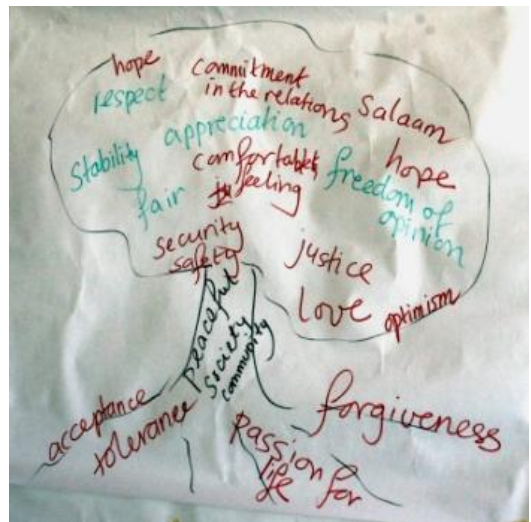 hope
respect
commitment
in the relations
Salaam
appreciation
Stability
comfortable
feeling
hope
fair
freedom of
opinion
security
safety
justice
love
optimism
peaceful
society
community
acceptance
tolerance
forgiveness
passion for
life